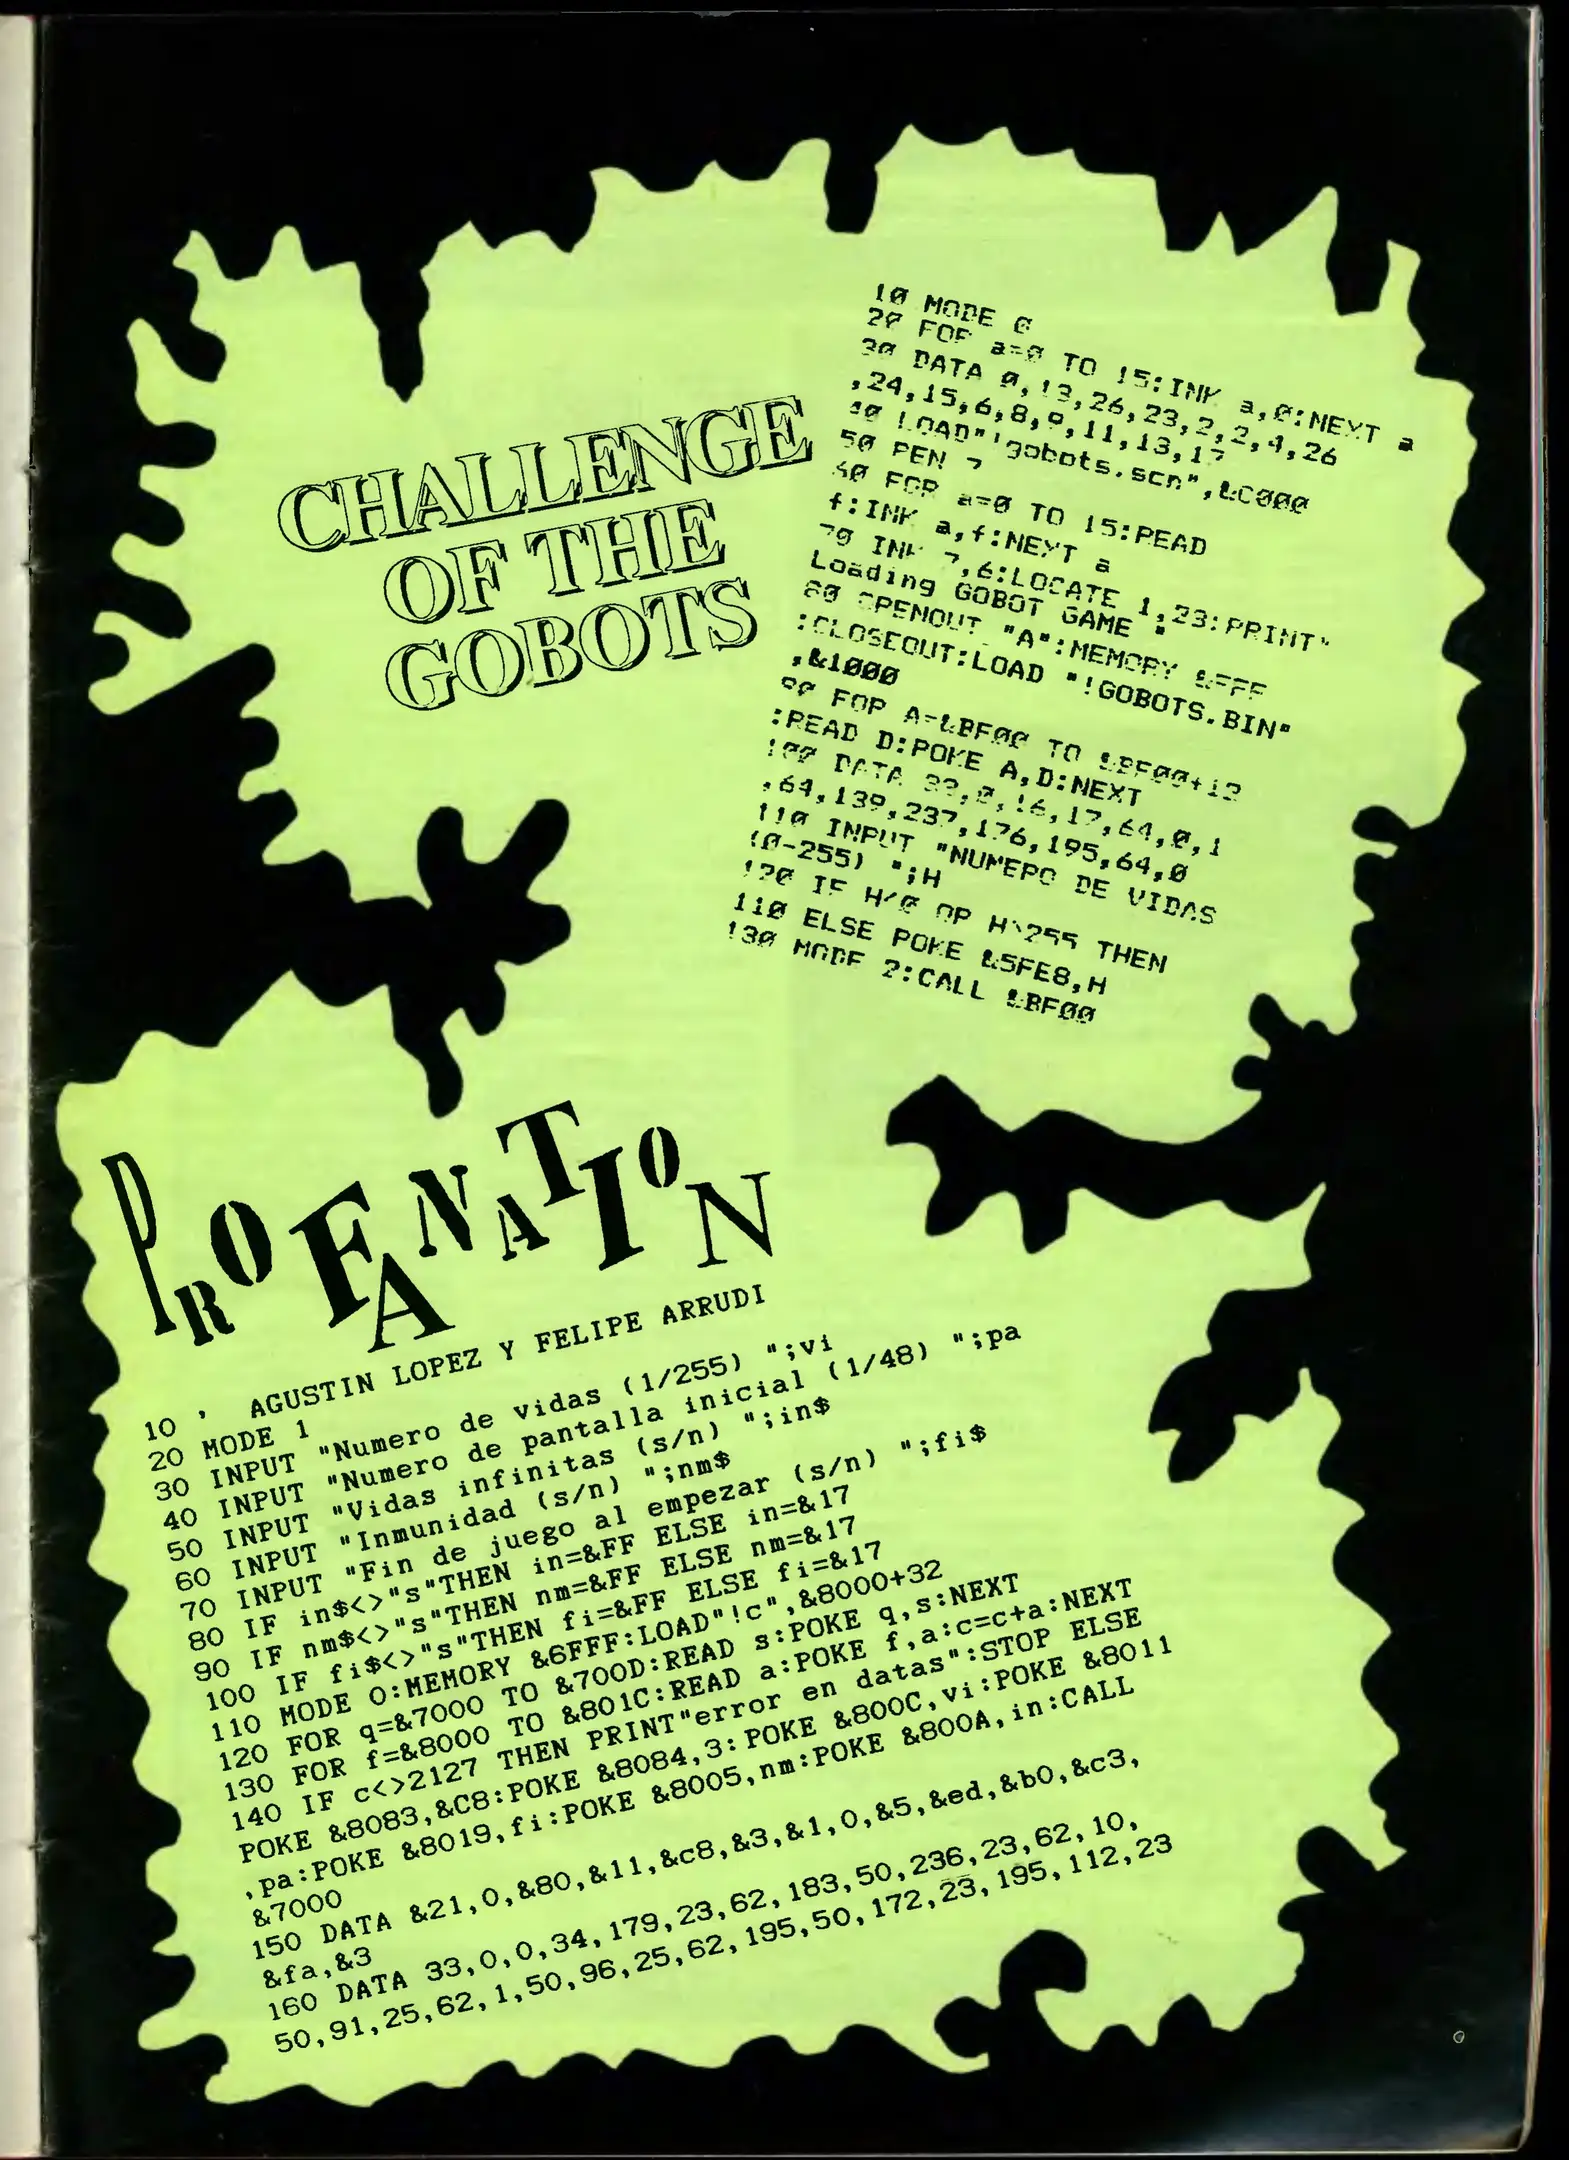 CHALLENGE
OF THE
GOBOTS
10 MODE 0
20 FOR a=0 TO 15:INK a,0:NEXT a
30 DATA 0,13,26,23,2,2,4,26
,24,15,6,8,9,11,13,17
40 LOAD"!gobots.scn",&C000
50 PEN 7
60 FOR a=0 TO 15:READ
f:INK a,f:NEXT a
70 INK 7,6:LOCATE 1,23:PRINT"
Loading GOBOT GAME "
80 OPENOUT "A":MEMORY &FFF
:CLOSEOUT:LOAD "!GOBOTS.BIN"
,&1000
90 FOR A=&BF00 TO &BF00+13
:READ D:POKE A,D:NEXT
100 DATA 33,0,16,17,64,0,1
,64,139,237,176,195,64,0
110 INPUT "NUMERO DE VIDAS
(0-255) ";H
120 IF H<0 OR H>255 THEN
110 ELSE POKE &5FE8,H
130 MODE 2:CALL &BF00
PROFANATION
10 ' AGUSTIN LOPEZ Y FELIPE ARRUDI
20 MODE 1
30 INPUT "Numero de vidas (1/255) ";vi
40 INPUT "Numero de pantalla inicial (1/48) ";pa
50 INPUT "Vidas infinitas (s/n) ";in$
60 INPUT "Inmunidad (s/n) ";nm$
70 INPUT "Fin de juego al empezar (s/n) ";fi$
80 IF in$<>"s"THEN in=&FF ELSE in=&17
90 IF nm$<>"s"THEN nm=&FF ELSE nm=&17
100 IF fi$<>"s"THEN fi=&FF ELSE fi=&17
110 MODE 0:MEMORY &6FFF:LOAD"!c",&8000+32
120 FOR q=&7000 TO &700D:READ s:POKE q,s:NEXT
130 FOR f=&8000 TO &801C:READ a:POKE f,a:c=c+a:NEXT
140 IF c<>2127 THEN PRINT"error en datas":STOP ELSE
POKE &8083,&C8:POKE &8084,3:POKE &800C,vi:POKE &8011
,pa:POKE &8019,fi:POKE &8005,nm:POKE &800A,in:CALL
&7000
150 DATA &21,0,&80,&11,&c8,&3,&1,0,&5,&ed,&b0,&c3,
&fa,&3
160 DATA 33,0,0,34,179,23,62,183,50,236,23,62,10,
50,91,25,62,1,50,96,25,62,195,50,172,23,195,112,23